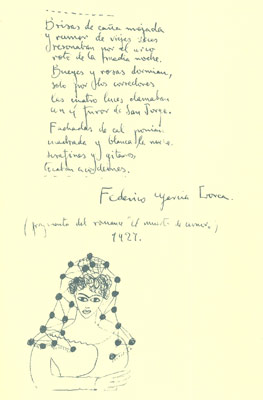 Brisas de caña mojada
y rumor de viejas voces
resonaban por el arco
roto de la media noche.
Bueyes y rosas dormian,
solo por los corredores
las cuatro luces clamaban
con el furor de San Jorge.
Fachadas de cal ponian
cuadrada y blanca la noche.
serafines y gitanos
tocaban acordeones.
Federico García Lorca.
(fragmento del romance "el muerto de amor".)
1927.